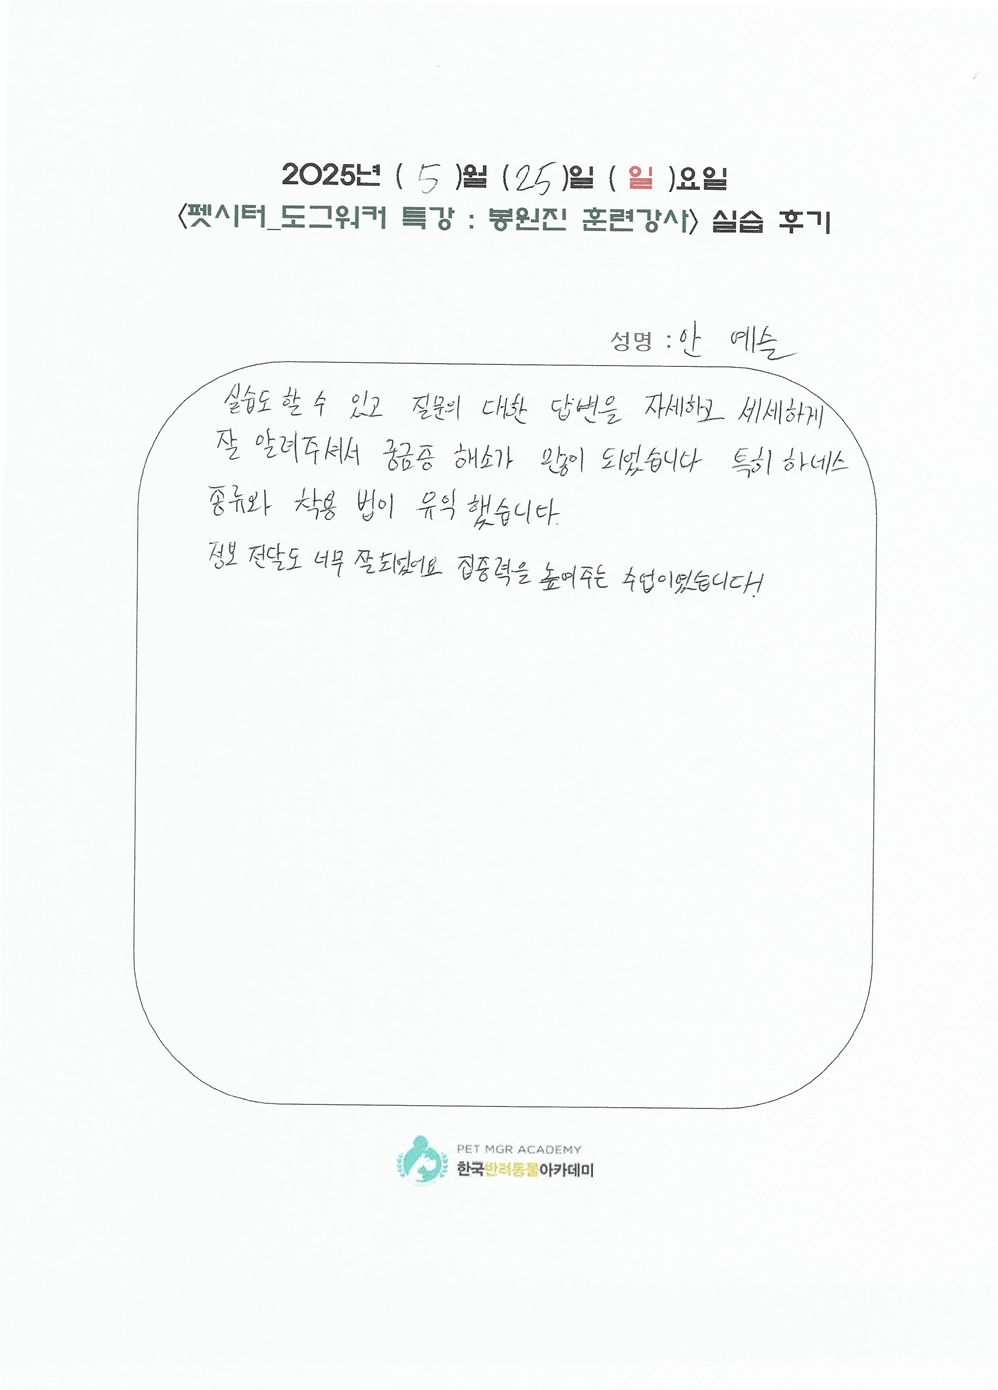 2025년 ( 5 )월 (25)일 ( 일 )요일
<펫시터_도그워커 특강 : 봉원진 훈련강사> 실습 후기
성명 : 안 예슬
실습도 할 수 있고 질문의 대한 답변을 자세하고 세세하게
잘 알려주셔서 궁금증 해소가 많이 되었습니다 특히 하네스
종류와 착용 법이 유익 했습니다.
정보 전달도 너무 잘 되었어요 집중력을 높여주는 수업이였습니다!
PET MGR ACADEMY
한국반려동물아카데미